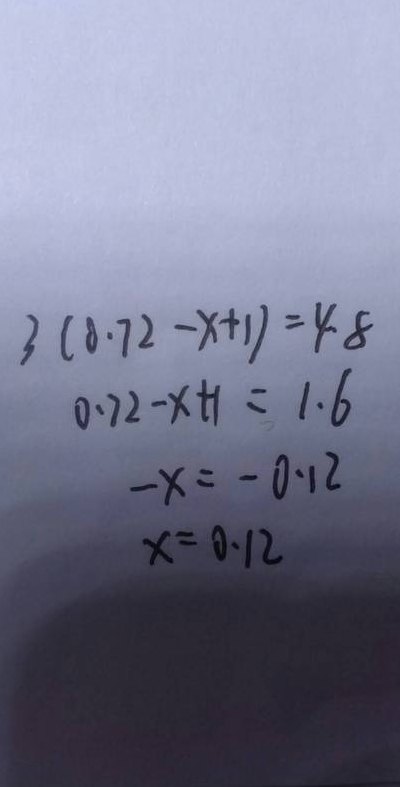 3(0.72-x+1)=4.8
0.72-x+1=1.6
-x=-0.12
x=0.12